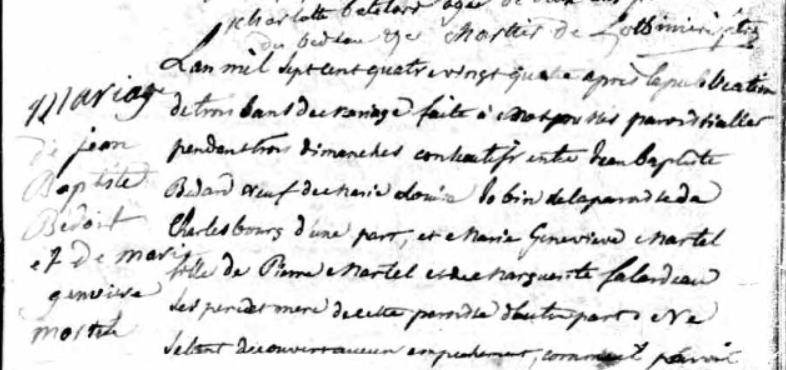 charlotte
Chartier de Lotbiniere ptre
Mariage
de jean
Baptiste
Bedart
et de mari
genvieve
martel
Lan mil sept cent quatre vingt quatre apres la publication
de trois bans de mariage faite à nos prosnes paroissialles
pendant trois dimanches consecutifs entre Jean baptiste
Bedard veuf de Marie Louise Jobin de la paroisse de
Charlesbourg d'une part, et Marie Genevieve Martel
fille de Pierre Martel et de Marguerite falardeau
ses pere et mere de cette paroisse d'autre part Ne
setant découvert aucun empechement, comme il